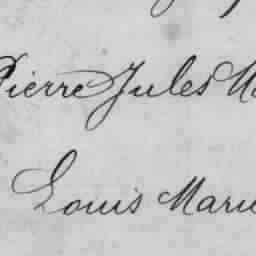 Pierre Jules
Louis Marie